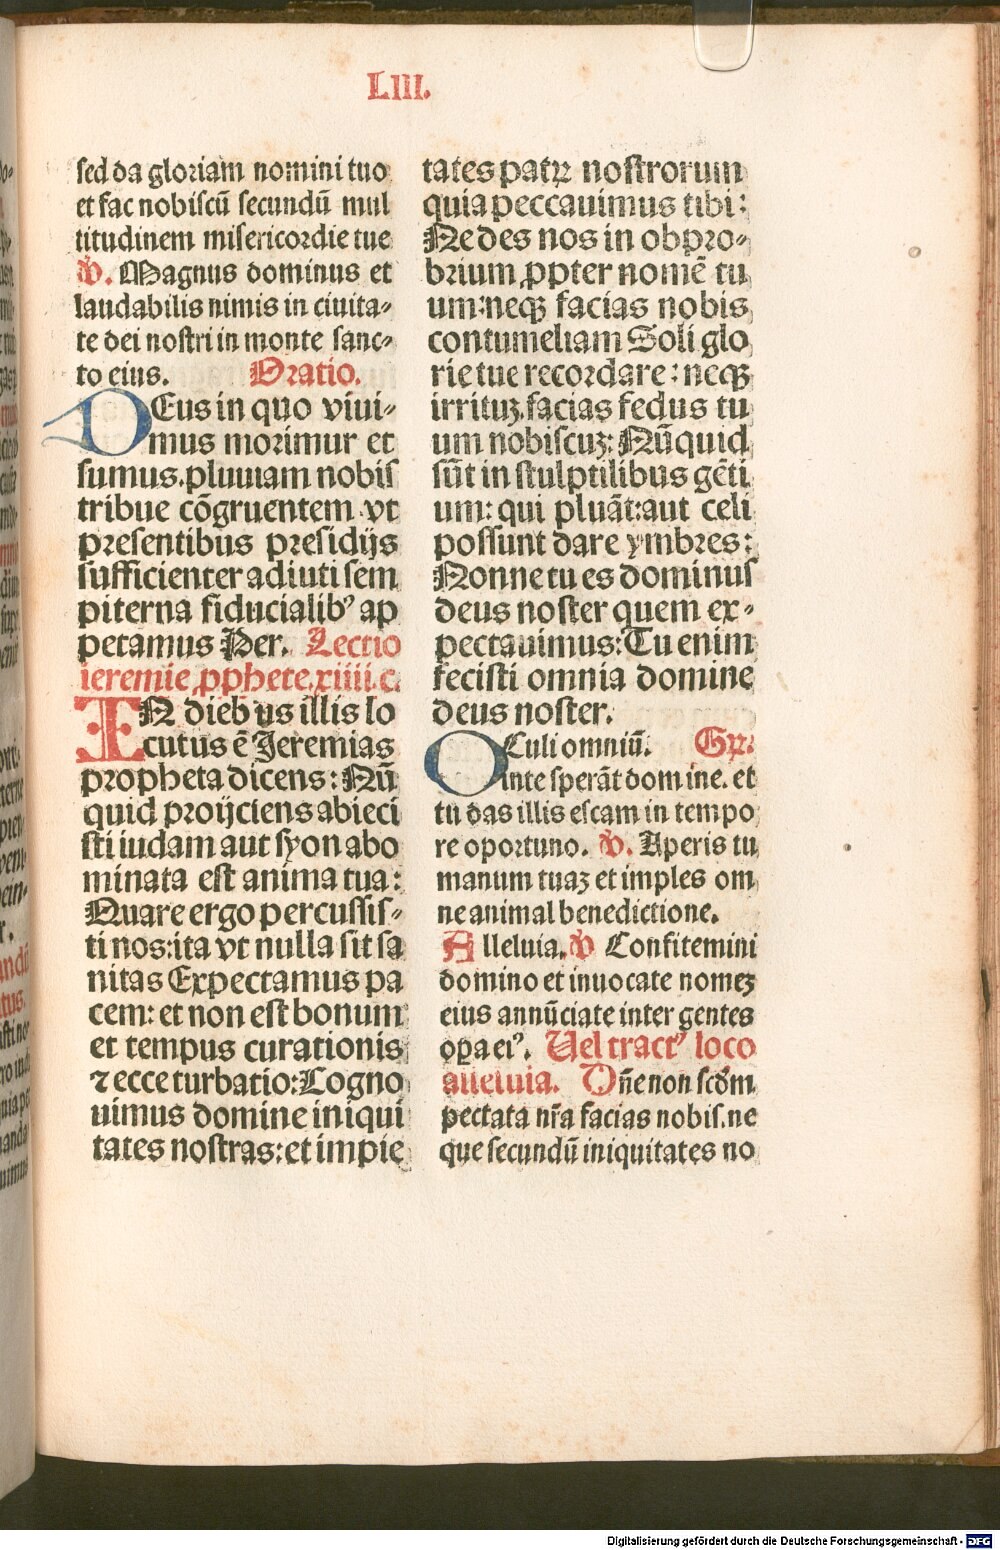 LIII.
sed da gloriam nomini tuo
et fac nobiscū secundū mul
titudinem misericordie tue
V. Magnus dominus et
laudabilis nimis in ciuita-
te dei nostri in monte sanc-
to eius. Oratio.
DEus in quo viui-
mus morimur et
sumus. pluuiam nobis
tribue cōgruentem vt
presentibus presidijs
sufficienter adiuti sem
piterna fiducialibꝰ ap
petamus Per. Lectio
ieremie ꝓphete. xiiii. c.
IN diebus illis lo
cutus ē Jeremias
propheta dicens: Nū
quid proijciens abieci
sti iudam aut syon abo
minata est anima tua:
Quare ergo percussis-
ti nos: ita vt nulla sit sa
nitas Expectamus pa
cem: et non est bonum
et tempus curationis
⁊ ecce turbatio: Cogno
uimus domine iniqui
tates nostras: et impie
tates patrꝝ nostrorum
quia peccauimus tibi:
Ne des nos in obpro-
brium ꝓpter nomē tu
um: neqꝫ facias nobis
contumeliam Soli glo
rie tue recordare: neqꝫ
irrituꝫ facias fedus tu
um nobiscuꝫ: Nūquid
sūt in sculptilibus gēti
um: qui pluāt: aut celi
possunt dare ymbres:
Nonne tu es dominus
deus noster quem ex-
pectauimus: Tu enim
fecisti omnia domine
deus noster.
OCuli omniū. Gꝛ.
inte sperāt domine. et
tu das illis escam in tempo
re oportuno. V. Aperis tu
manum tuaꝫ et imples om
ne animal benedictione.
Alleluia. V Confitemini
domino et inuocate nomeꝫ
eius annūciate inter gentes
opa eiꝰ. Uel tractꝰ loco
alleluia. Dñe non scd̄m
peccata nr̄a facias nobis. ne
que secundū iniquitates no
Digitalisierung gefördert durch die Deutsche Forschungsgemeinschaft - DFG